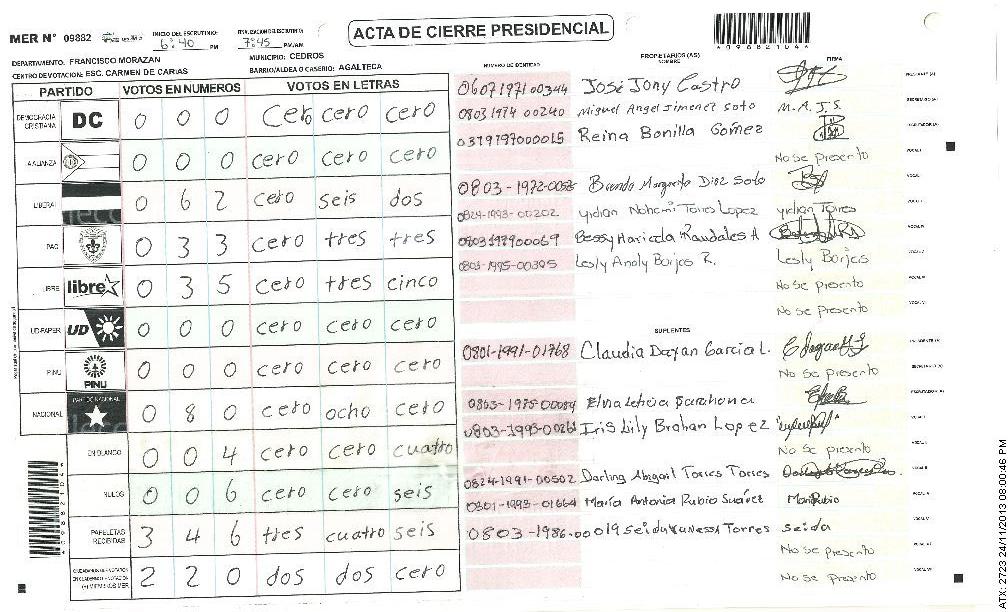 MER N° 09882
INICIO DEL ESCRUTINIO: 6:40 PM
FINALIZACION DEL ESCRUTINIO: 7:45 PM/AM
ACTA DE CIERRE PRESIDENCIAL
DEPARTAMENTO: FRANCISCO MORAZAN
MUNICIPIO: CEDROS
CENTRO DE VOTACION: ESC. CARMEN DE CARIAS
BARRIO/ALDEA O CASERIO: AGALTECA
PARTIDO VOTOS EN NUMEROS VOTOS EN LETRAS
DEMOCRACIA CRISTIANA DC 0 0 0 cero cero cero
LA ALIANZA 0 0 0 cero cero cero
LIBERAL 0 6 2 cero seis dos
PAC 0 3 3 cero tres tres
LIBRE libre 0 3 5 cero tres cinco
UD-FAPER UD 0 0 0 cero cero cero
PINU PINU 0 0 0 cero cero cero
NACIONAL 0 8 0 cero ocho cero
EN BLANCO 0 0 4 cero cero cuatro
NULOS 0 0 6 cero cero seis
PAPELETAS RECIBIDAS 3 4 6 tres cuatro seis
2 2 0 dos dos cero
NUMERO DE IDENTIDAD PROPIETARIOS (AS) NOMBRE FIRMA
0607197100344 José Jony Castro
0803 1974 00240 Miguel Angel Jimenez Soto M.A.J.S.
0319197000015 Reina Bonilla Gómez
No se presento
0803-1972-0052 Brenda Margarita Diaz Soto
0824-1993-00202 Yidian Nohemi Torres Lopez Yidian Torres
0803197900069 Bessy Maricela Raudales A
0803-1995-00395 Lesly Anoly Borjas R. Lesly Borjas
No se presento
No se presento
SUPLENTES
0801-1991-01768 Claudia Dayan Garcia L.
No se presento
0803-1975-00084 Elva Leticia Barahona
0803-1993-00261 Iris Lily Brahan Lopez
No se presento
0824-1991-00502 Darling Abigail Torres Torres
0801-1993-01664 María Antonia Rubio Suárez Mari Rubio
0803-1986-00019 Seida Vanessa Torres Seida
No se presento
No se presento
ATX: 2723 24/11/2013 08:00:46 PM